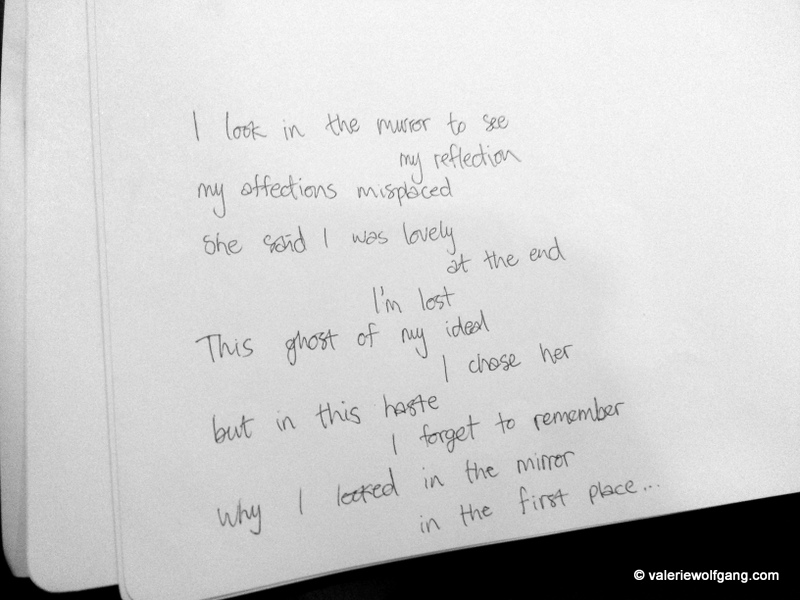 I look in the mirror to see
my reflection
my affections misplaced
She said I was lovely
at the end
I'm lost
This ghost of my ideal
I chase her
but in this haste
I forget to remember
why I looked in the mirror
in the first place...
© valeriewolfgang.com